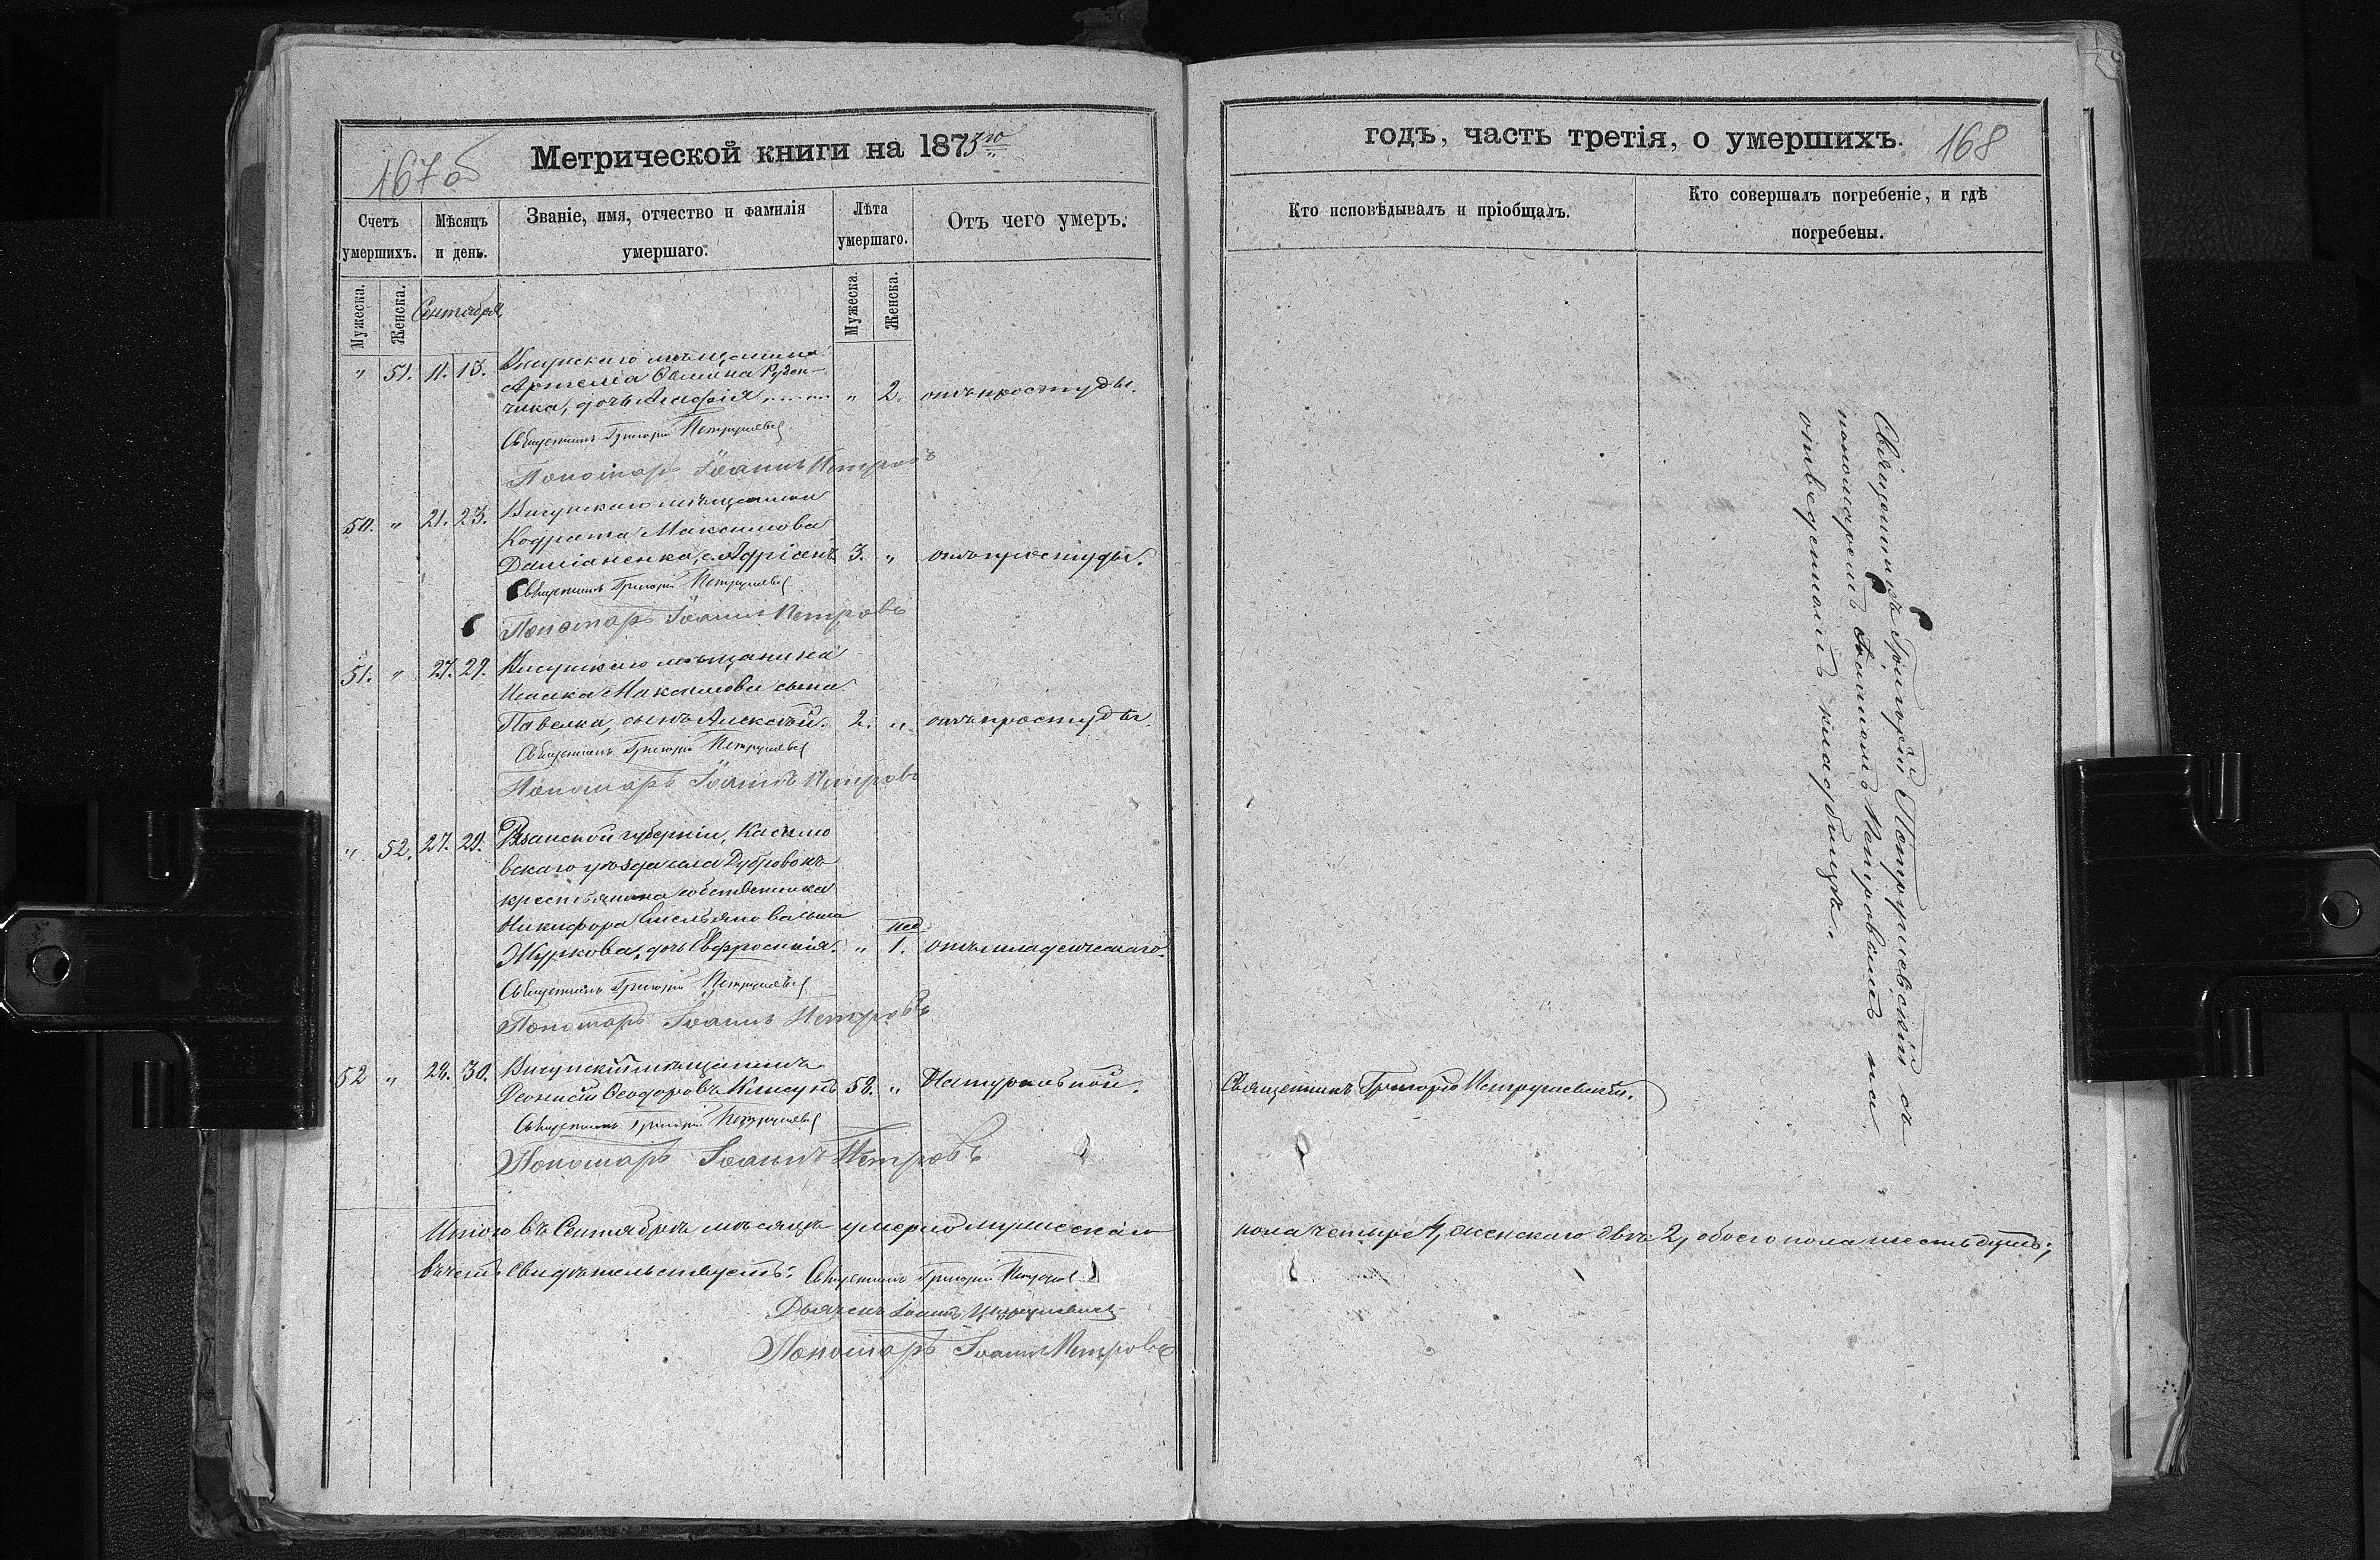 Метрической книги на 1873го
167об
Счетъ умершихъ.
Мѣсяцъ и день.
Званіе, имя, отчество и фамилія умершаго.
Лѣта умершаго.
Отъ чего умеръ.
Мужеска.
Женска.
Сентября
Мужеска.
Женска.
" 51. 11. 13. мѣщанина
Артемія Руден-
чика, дочь " 2. отъ простуды.
Священникъ Григорій
Пономарь Іоаннъ Петровъ
50. " 21. 23. мѣщанина
Кодрата Максимова
Даміаненка, с. Адріанъ 3. " отъ простуды.
Священникъ Григорій
Пономарь Іоаннъ Петровъ
51. " 27. 29. мѣщанина
Исаака Максимова сына
Павелка, сынъ Алексѣй. 2. " отъ простуды.
Священникъ Григорій
Пономарь Іоаннъ Петровъ
" 52. 27. 29. Рязанской губерніи, Касимо
вскаго уѣзда села Дубровокъ
крестьянина собственника
Никифора Емельянова сына
Журкова, дочь Евфросинія. " нед 1. отъ младенческаго.
Священникъ Григорій
Пономарь Іоаннъ Петровъ
52 " 28. 30. мѣщанинъ
Діонисій Ѳеодоровъ 58. " Натуральной.
Священникъ Григорій
Пономарь Іоаннъ Петровъ
Итого въ Сентябрѣ мѣсяцѣ умерло мужескаго
въ чемъ свидѣтельствуемъ: Священникъ Григорій
Дьячекъ Іоаннъ
Пономарь Іоаннъ Петровъ
годъ, часть третія, о умершихъ.
168
Кто исповѣдывалъ и пріобщалъ.
Кто совершалъ погребеніе, и гдѣ погребены.
Священникъ Григорій Петрушевскій съ
пономаремъ Іоанномъ Петровымъ на
отведенномъ кладбищѣ.
Священникъ Григорій Петрушевскій.
пола четыре 4, женскаго двѣ 2, обоего пола шесть душъ;